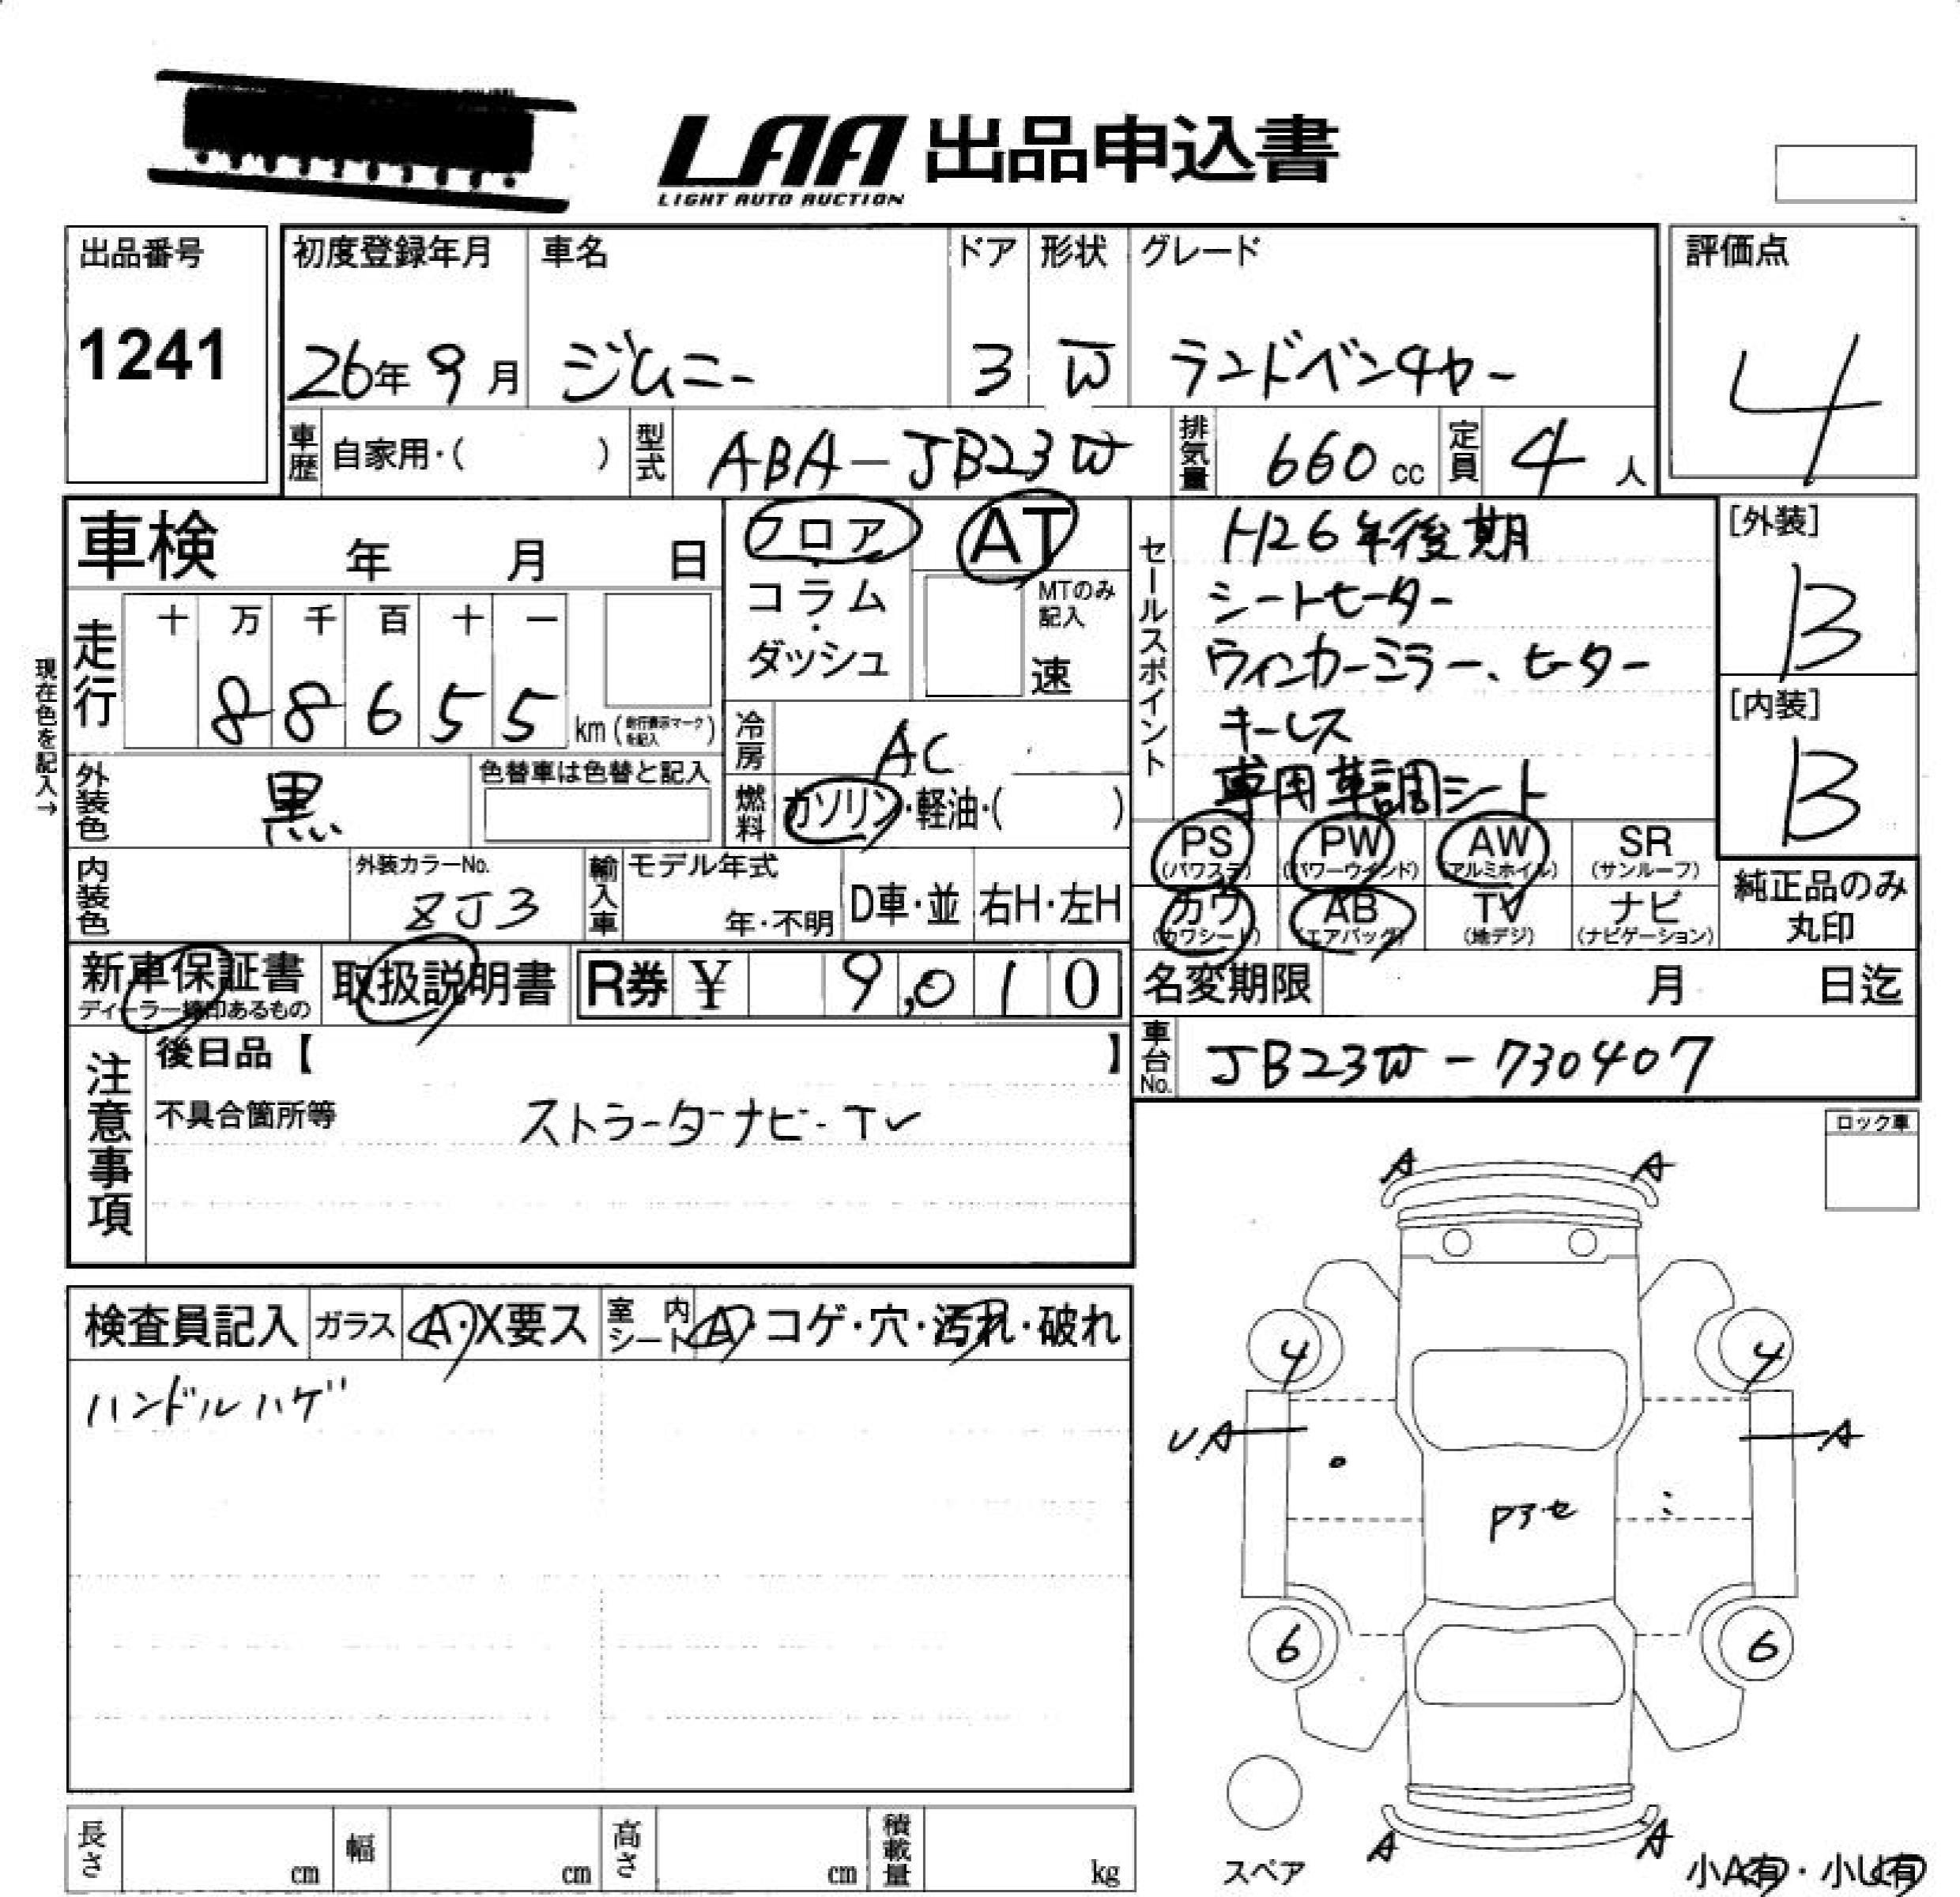 LAA 出品申込書
LIGHT AUTO AUCTION
出品番号
1241
初度登録年月
26年 9月
車名
ジムニー
ドア
3
形状
W
グレード
ランドベンチャー
評価点
4
車歴 自家用・( )
型式 ABA-JB23W
排気量 660 cc
定員 4 人
車検 年 月 日
フロア
・
コラム
・
ダッシュ
AT
MTのみ
記入
速
セールスポイント
H26年後期
シートヒーター
ウィンカーミラー、ヒーター
キーレス
専用革調シート
[外装]
B
[内装]
B
現在色を記入→
走行
十 万 千 百 十 一
8 8 6 5 5 km (走行表示マークを記入)
冷房 AC
外装色 黒
色替車は色替と記入
燃料 ガソリン・軽油・( )
PS (パワステ)
PW (パワーウインド)
AW (アルミホイル)
SR (サンルーフ)
カワ (カワシート)
AB (エアバッグ)
TV (地デジ)
ナビ (ナビゲーション)
純正品のみ
丸印
内装色
外装カラーNo.
ZJ3
輸入車
モデル年式
年・不明
D車・並
右H・左H
新車保証書
ディーラー捺印あるもの
取扱説明書
R券 ¥ 9,010
名変期限 月 日迄
車台No. JB23W-730407
注意事項
後日品【 】
不具合箇所等
ストラーダナビ-TV
ロック車
検査員記入
ガラス A・X要ス
室内シート A・コゲ・穴・汚れ・破れ
ハンドルハゲ
A A
4 4
UA A
Pアセ
6 6
A A
スペア
小A有・小U有
長さ cm
幅 cm
高さ cm
積載量 kg